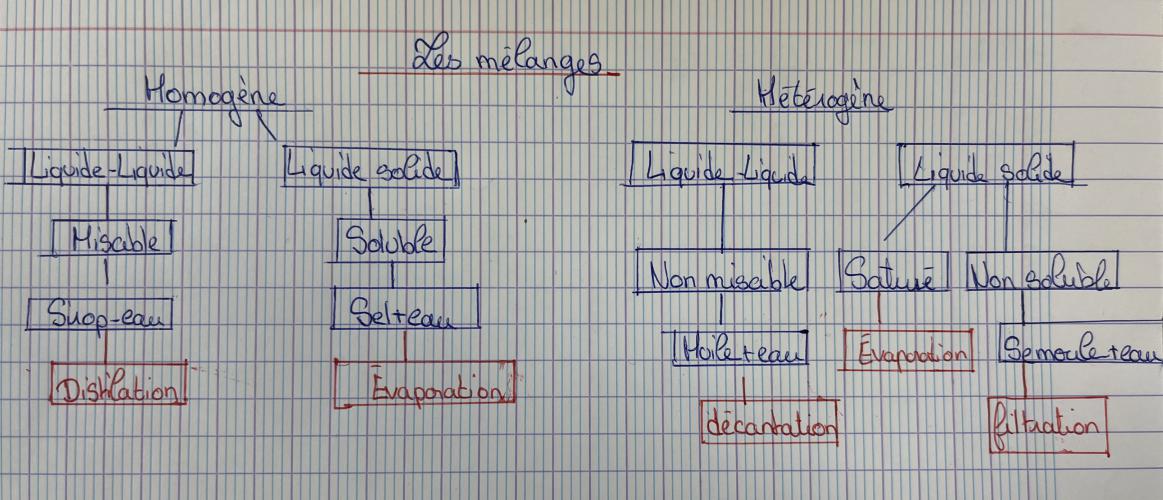 Les mélanges
Homogène
Hétérogène
Liquide-Liquide
Liquide solide
Liquide-Liquide
Liquide solide
Misable
Soluble
Non miscible
Saturé
Non soluble
Sirop-eau
Sel+eau
Huile+eau
Évaporation
Semoule+eau
Distilation
Évaporation
décantation
filtration